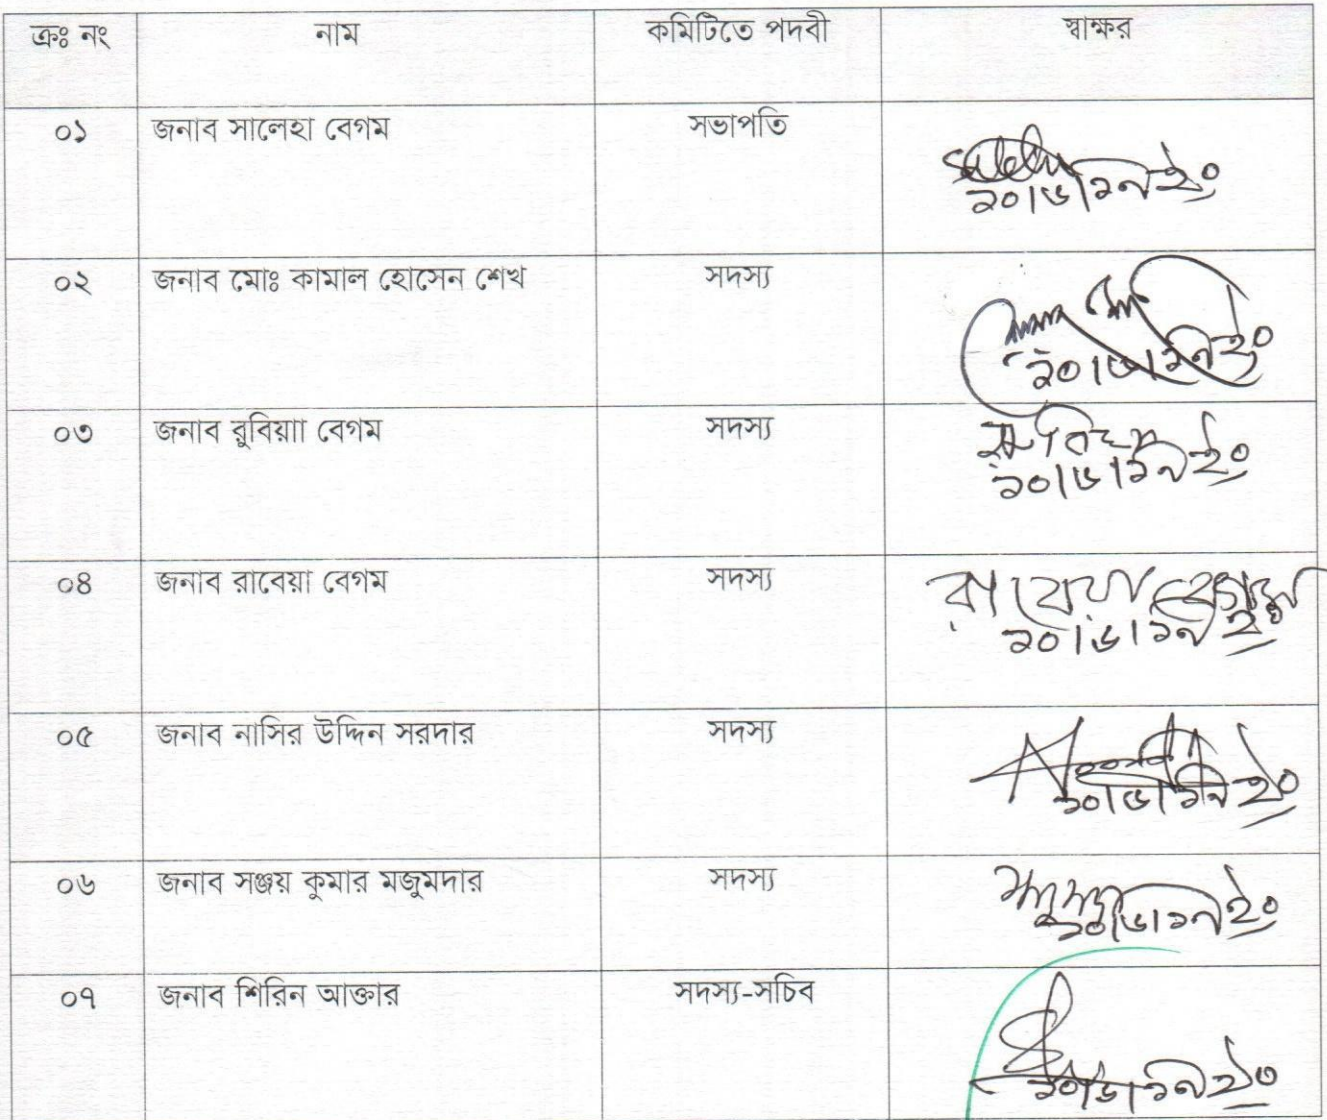 ক্রঃ নং নাম কমিটিতে পদবী স্বাক্ষর
০১ জনাব সালেহা বেগম সভাপতি
২০।৬।১৭ইং
০২ জনাব মোঃ কামাল হোসেন শেখ সদস্য
২০।৬।১৭ইং
০৩ জনাব রুবিয়াা বেগম সদস্য
২০।৬।১৭ইং
০৪ জনাব রাবেয়া বেগম সদস্য রাবেয়া বেগম
২০।৬।১৭ইং
০৫ জনাব নাসির উদ্দিন সরদার সদস্য
২০।৬।১৭ইং
০৬ জনাব সঞ্জয় কুমার মজুমদার সদস্য
২০।৬।১৭ইং
০৭ জনাব শিরিন আক্তার সদস্য-সচিব
২০।৬।১৭ইং